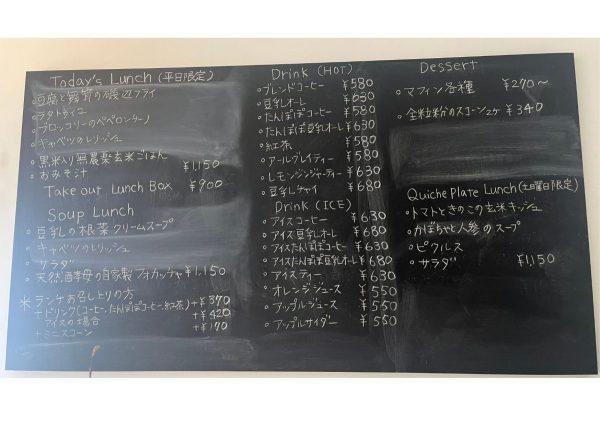 Today's Lunch (平日限定)
豆腐と蓮根の磯辺フライ
ラタトゥイユ
ブロッコリーのペペロンチーノ
キャベツのレリッシュ
黒米入り無農薬玄米ごはん
おみそ汁 ¥1,150
Take out Lunch Box ¥900
Soup Lunch
豆乳の根菜クリームスープ
キャベツのレリッシュ
サラダ
天然酒酵母の自家製フォカッチャ ¥1,150
＊ランチお召し上りの方
+ドリンク(コーヒー、たんぽぽコーヒー、紅茶) +¥370
アイスの場合 +¥420
+ミニスコーン +¥170
Drink (HOT)
ブレンドコーヒー ¥580
豆乳オーレ ¥630
たんぽぽコーヒー ¥580
たんぽぽ豆乳オーレ ¥630
紅茶 ¥580
アールグレイティー ¥580
レモンジンジャーティー ¥630
豆乳チャイ ¥680
Drink (ICE)
アイスコーヒー ¥630
アイス豆乳オーレ ¥680
アイスたんぽぽコーヒー ¥630
アイスたんぽぽ豆乳オーレ ¥680
アイスティー ¥630
オレンジジュース ¥550
アップルジュース ¥550
アップルサイダー ¥550
Dessert
マフィン各種 ¥270〜
全粒粉のスコーン2ヶ ¥340
Quiche Plate Lunch (土曜日限定)
トマトときのこの玄米キッシュ
かぼちゃと人参のスープ
ピクルス
サラダ ¥1,150